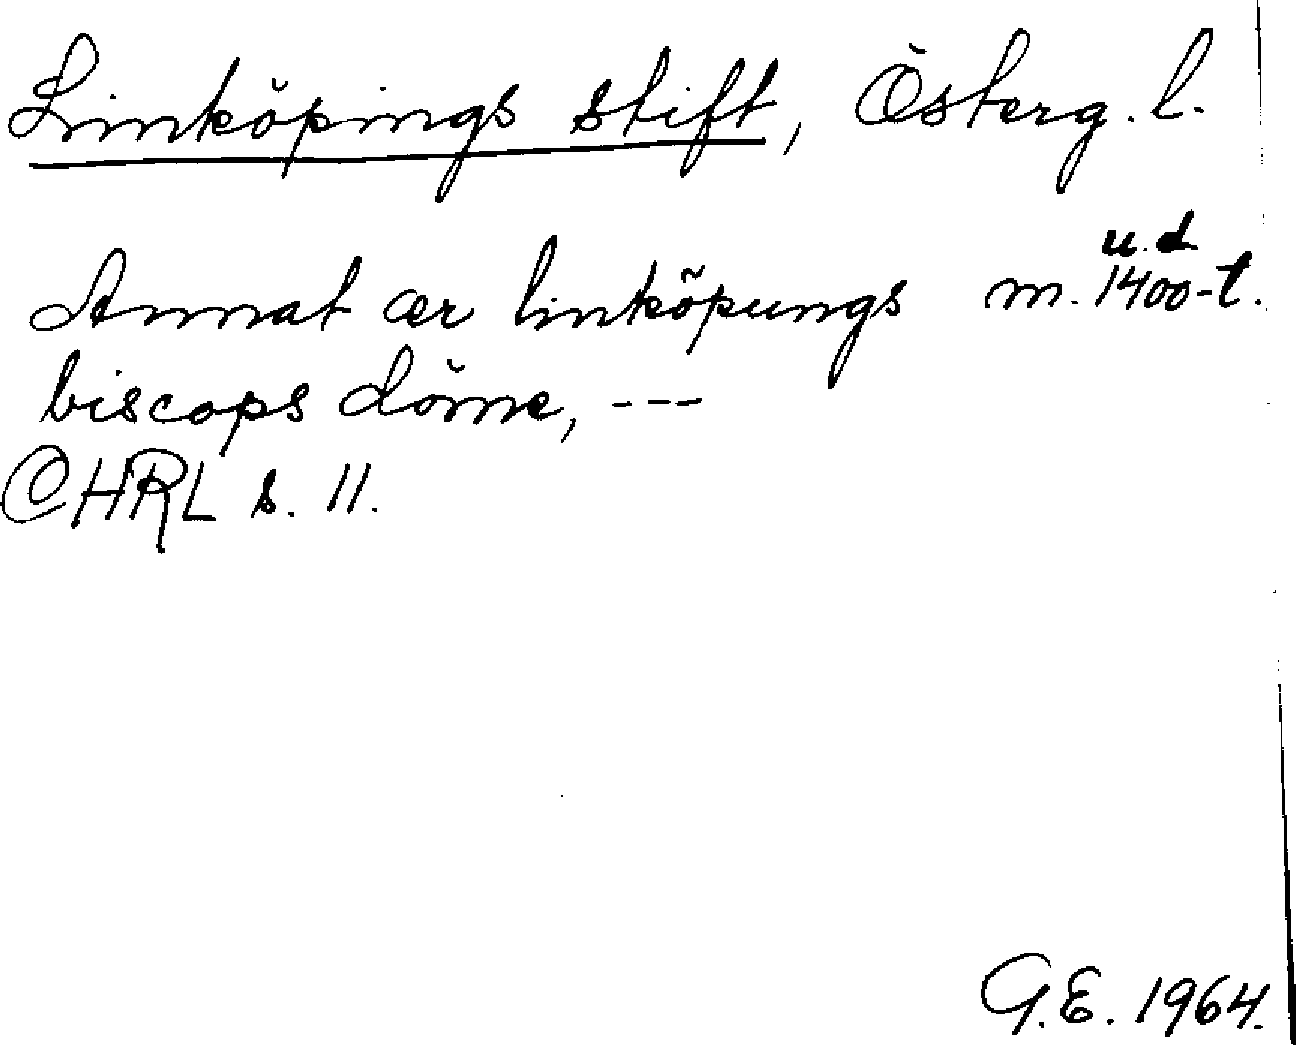 Linköpings stift, Österg. l.
u. d.
Annat ær linköpungs m. 1400-t.
biscops döme, ---
CHRL s. 11.
G.E. 1964.